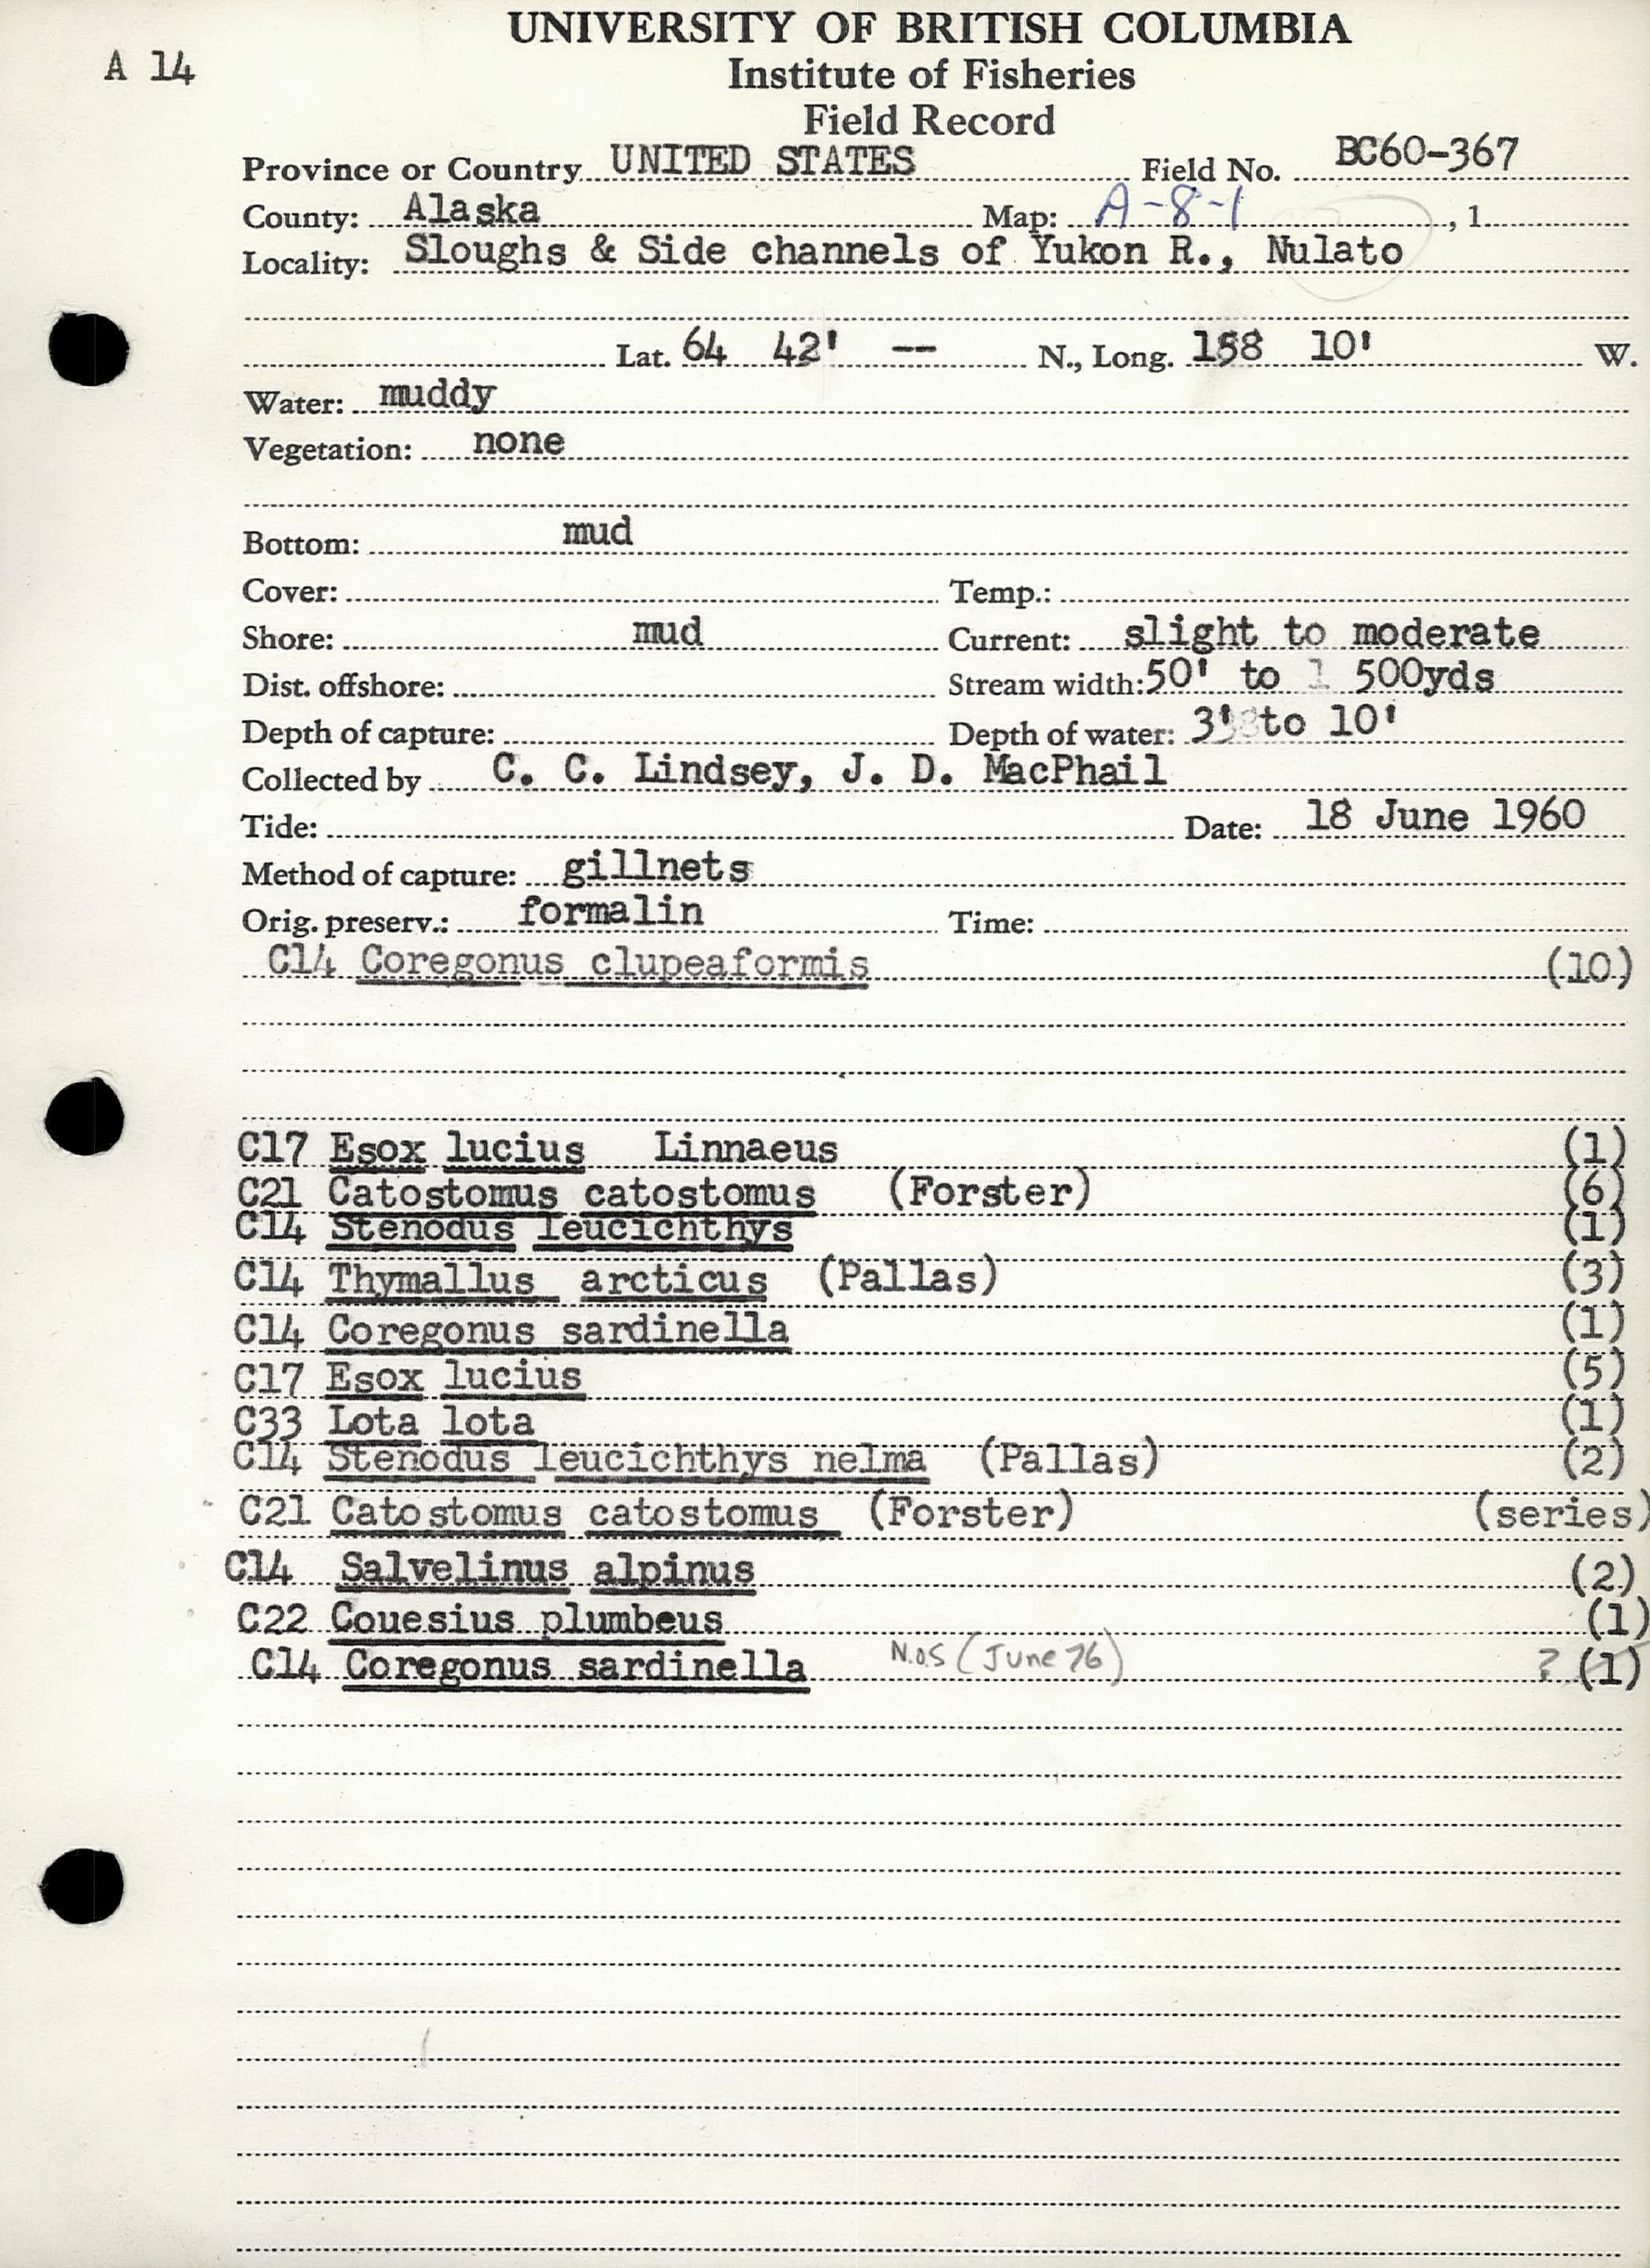 UNIVERSITY OF BRITISH COLUMBIA
A 14
Institute of Fisheries
Field Record
Province or Country UNITED STATES Field No. BC60-367
County: Alaska Map: A-8-1 , 1
Locality: Sloughs & Side channels of Yukon R., Nulato
Lat. 64 42' -- N., Long. 158 10' W.
Water: muddy
Vegetation: none
Bottom: mud
Cover: Temp.:
Shore: mud Current: slight to moderate
Dist. offshore: Stream width: 50' to 1 500yds
Depth of capture: Depth of water: 3' to 10'
Collected by C. C. Lindsey, J. D. MacPhail
Tide: Date: 18 June 1960
Method of capture: gillnets
Orig. preserv.: formalin Time:
C14 Coregonus clupeaformis (10)
C17 Esox lucius Linnaeus (1)
C21 Catostomus catostomus (Forster) (6)
C14 Stenodus leucichthys (1)
C14 Thymallus arcticus (Pallas) (3)
C14 Coregonus sardinella (1)
C17 Esox lucius (5)
C33 Lota lota (1)
C14 Stenodus leucichthys nelma (Pallas) (2)
C21 Catostomus catostomus (Forster) (series)
C14 Salvelinus alpinus (2)
C22 Couesius plumbeus (1)
C14 Coregonus sardinella N.O.S (June 76) ? (1)